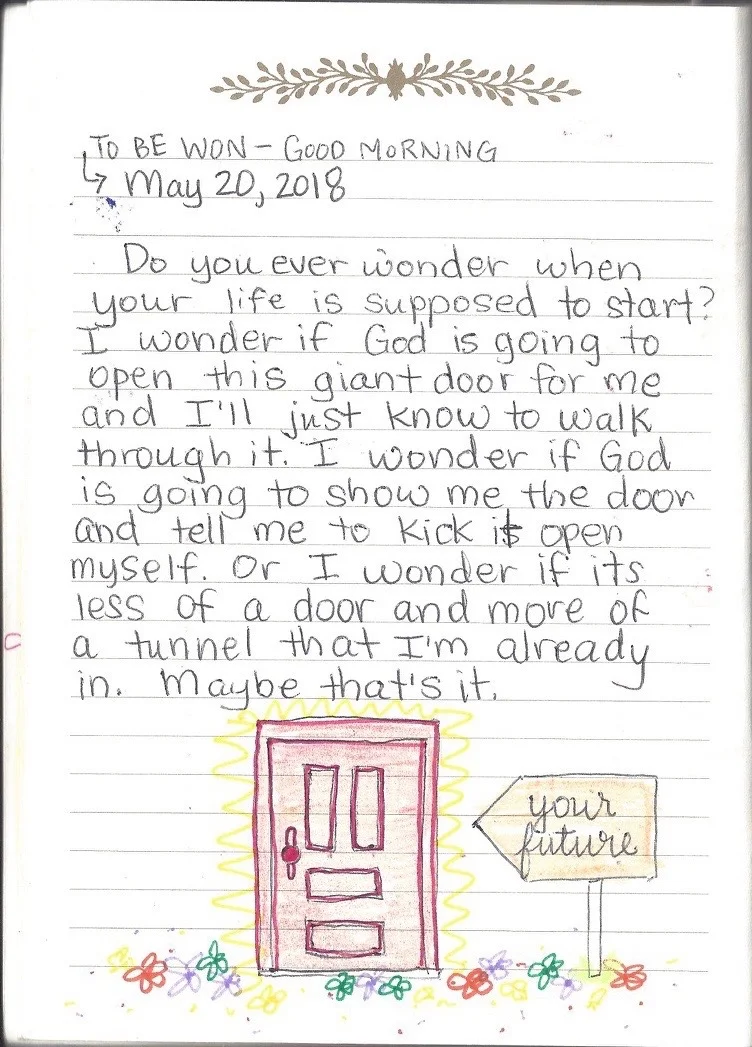 TO BE WON - GOOD MORNING
↳ May 20, 2018
Do you ever wonder when
your life is supposed to start?
I wonder if God is going to
open this giant door for me
and I'll just know to walk
through it. I wonder if God
is going to show me the door
and tell me to kick it open
myself. Or I wonder if its
less of a door and more of
a tunnel that I'm already
in. Maybe that's it.
your
future